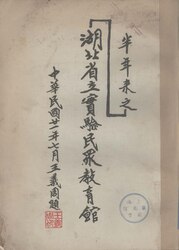 半年來之
湖北省立實驗民眾教育館
中華民國廿一年七月王義周題